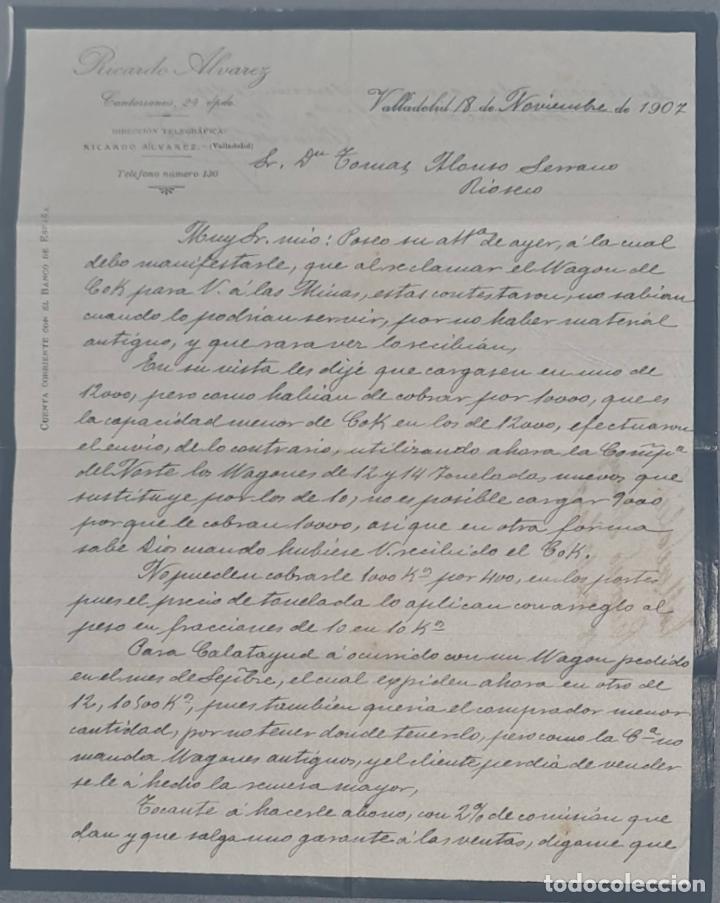 Ricardo Alvarez
Cantarranas, 24 dpdo.
DIRECCIÓN TELEGRÁFICA:
RICARDO ALVAREZ.-(Valladolid)
Teléfono número 130
CUENTA CORRIENTE CON EL BANCO DE ESPAÑA
Valladolid 18 de Noviembre de 1907
Sr. Dn Tomas Alonso Serrano
Rioseco
Muy Sr. mio: Poseo su attª de ayer, á la cual
debo manifestarle, que al reclamar el Wagon de
Cok para V. á las Minas, estas contestaron, no sabian
cuando lo podrian servir, por no haber material
antiguo, y que rara vez lo recibian,
En su vista les dije que cargasen en uno de
12000, pero como habian de cobrar por 10000, que es
la capacidad menor de Cok en los de 12000, efectuaron
el envio, de lo contrario, utilizando ahora la Compª
del Norte los Wagones de 12 y 14 Toneladas nuevos que
sustituye por los de 10, no es posible cargar 9000
porque le cobran 10000, asi que en otra forma
sabe Dios cuando hubiese V. recibido el Cok.
No pueden cobrarle 1000 Kº por 400, en los portes
pues el precio de tonelada lo aplican con arreglo al
peso en fracciones de 10 en 10 Kº
Para Calatayud á ocurrido con un Wagon pedido
en el mes de Sepbre, el cual expiden ahora en otro de
12, 10500 Kº, pues tambien queria el comprador menor
cantidad, por no tener donde tenerlo, pero como la Cª no
manda Wagones antiguos, y el cliente perdia de vender
se le á hecho la remesa mayor,
Tocante á hacerle abono, con 2% de comisión que
dan y que salga uno garante á las ventas, digame que
todocoleccion.net